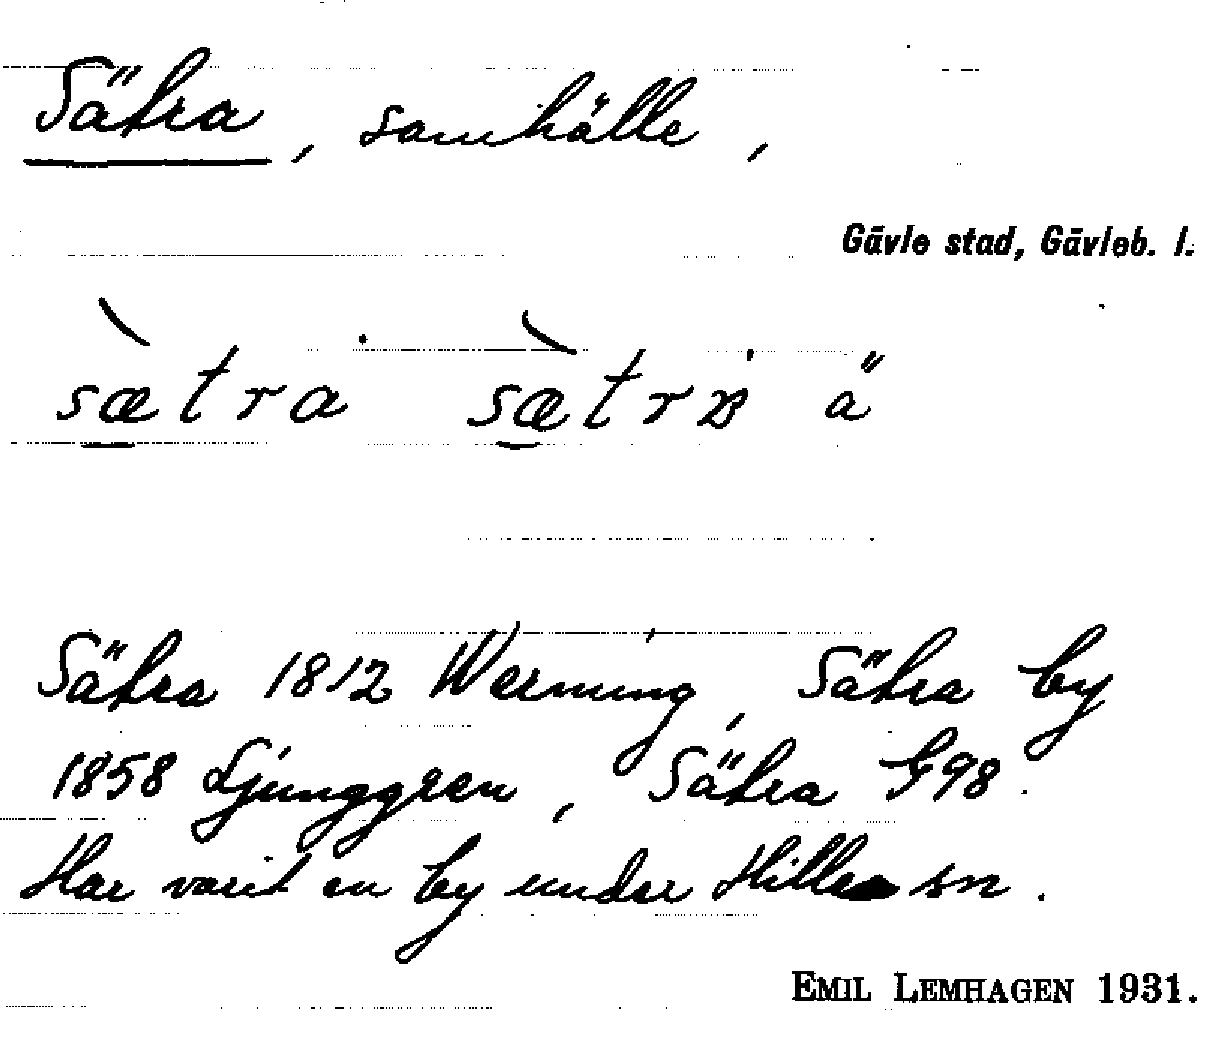 Sätra, samhälle,
Gävle stad, Gävleb. l.
sætra sætrɐ ä
Sätra 1812 Wernung, Sätra by
1858 Ljunggren, Sätra G98.
Har varit en by under Hille sn.
EMIL LEMHAGEN 1931.